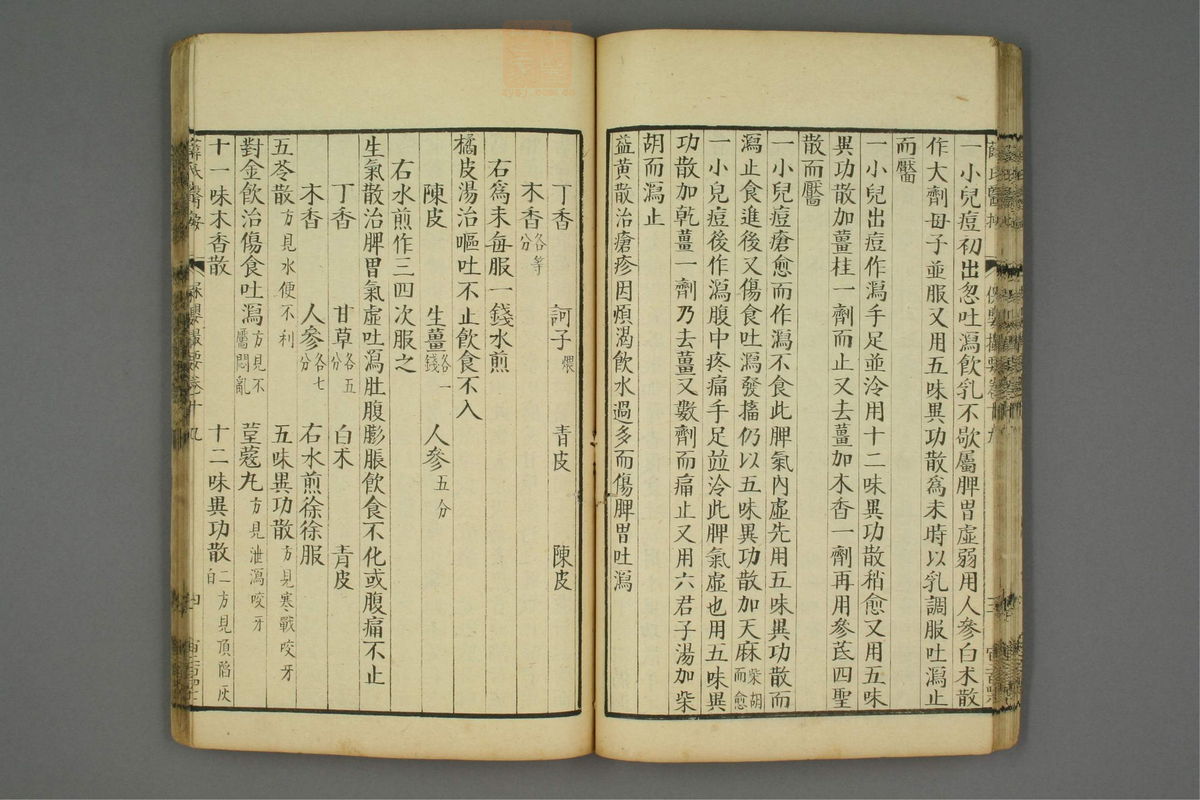 一小兒痘初出忽吐瀉飲乳不歇屬脾胃虛弱用人參白朮散
作大劑母子並服又用五味異功散為末時以乳調服吐瀉止
而靨
一小兒出痘作瀉手足並冷用十二味異功散稍愈又用五味
異功散加薑桂一劑而止又去薑加木香一劑再用參芪四聖
散而靨
一小兒痘瘡愈而作瀉不食此脾氣內虛先用五味異功散而
瀉止食進後又傷食吐瀉發搐仍以五味異功散加天麻柴胡而愈
一小兒痘後作瀉腹中疼痛手足並冷此脾氣虛也用五味異
功散加乾薑一劑乃去薑又數劑而痛止又用六君子湯加柴
胡而瀉止
益黃散治瘡疹因煩渴飲水過多而傷脾胃吐瀉
丁香 訶子煨 青皮 陳皮
木香各等分
右為末每服一錢水煎
橘皮湯治嘔吐不止飲食不入
陳皮 生薑各一錢 人參五分
右水煎作三四次服之
生氣散治脾胃氣虛吐瀉肚腹膨脹飲食不化或腹痛不止
丁香 甘草各五分 白朮 青皮
木香 人參各七分 右水煎徐徐服
五苓散方見水便不利 五味異功散方見寒戰咬牙
對金飲治傷食吐瀉方見不靨悶亂 荳蔻丸方見泄瀉咬牙
十一味木香散 十二味異功散二方見頂陷灰白